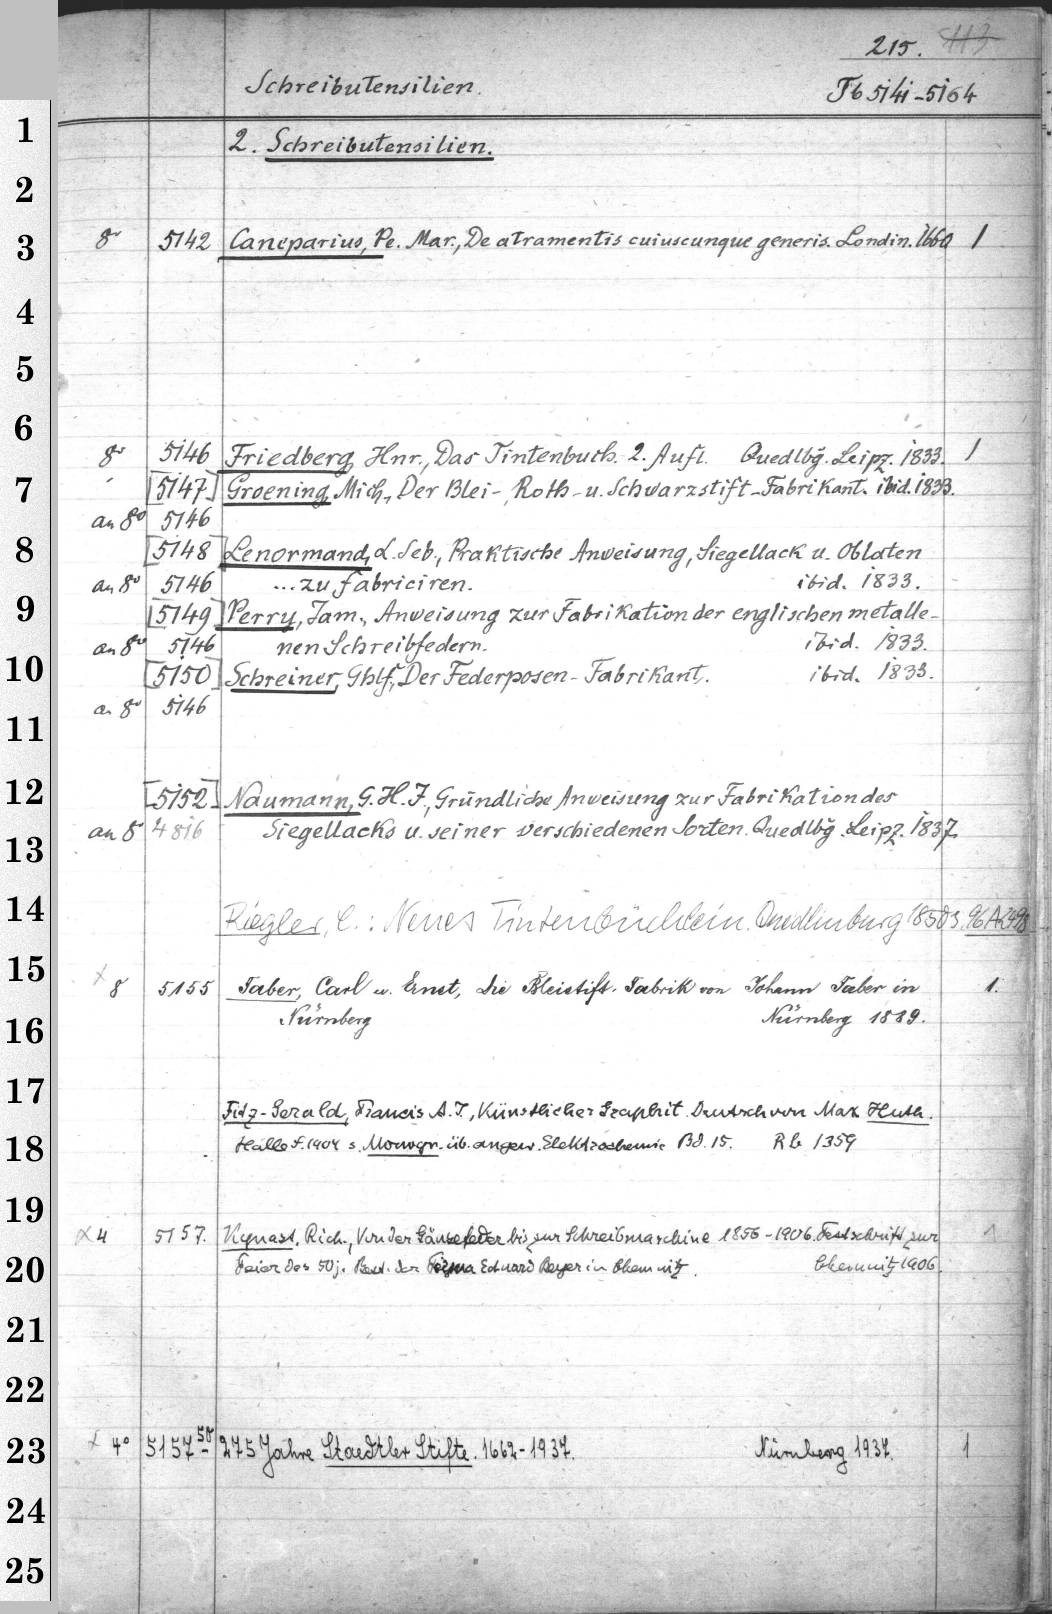 215. 113
Schreibutensilien. Tb 5141-5164
2. Schreibutensilien.
8º 5142 Caneparius, Pe. Mar., De atramentis cuiuscunque generis. Londin. 1660 1
8º 5146 Friedberg, Hnr., Das Tintenbuch. 2. Aufl. Quedlbg. Leipz. 1833. 1
[5147] Groening, Mich., Der Blei-, Roth- u. Schwarzstift-Fabrikant. ibid. 1833.
an 8º 5146
[5148] Lenormand, L. Seb., Praktische Anweisung, Siegellack u. Oblaten
an 8º 5146 ... zu fabriciren. ibid. 1833.
[5149] Perry, Jam., Anweisung zur Fabrikation der englischen metalle-
an 8º 5146 nen Schreibfedern. ibid. 1833.
[5150] Schreiner, Ghlf, Der Federposen-Fabrikant. ibid. 1833.
an 8º 5146
[5152] Naumann, G. H. F., Gründliche Anweisung zur Fabrikation des
an 8º 4816 Siegellacks u. seiner verschiedenen Sorten. Quedlbg. Leipz. 1837.
Riegler, C.: Neues Tintenbüchlein. Quedlinburg 1850 96 A 2498
8 5155 Faber, Carl u. Ernst, die Bleistift-Fabrik von Johann Faber in 1.
Nürnberg Nürnberg 1889.
Fitz-Gerald, Francis A. J., Künstlicher Graphit. Deutsch von Max Huth.
Halle S. 1904 s. Monogr. üb. angew. Elektrochemie Bd. 15. Rb 1359
4 5157. Kynast, Rich., Von der Gänsefeder bis zur Schreibmaschine 1856-1906. Festschrift zur 1
Feier des 50j. Best. der Firma Eduard Beyer in Chemnitz. Chemnitz 1906.
4º 5157 50 275 Jahre Staedtler Stifte. 1662-1937. Nürnberg 1937. 1
1
2
3
4
5
6
7
8
9
10
11
12
13
14
15
16
17
18
19
20
21
22
23
24
25